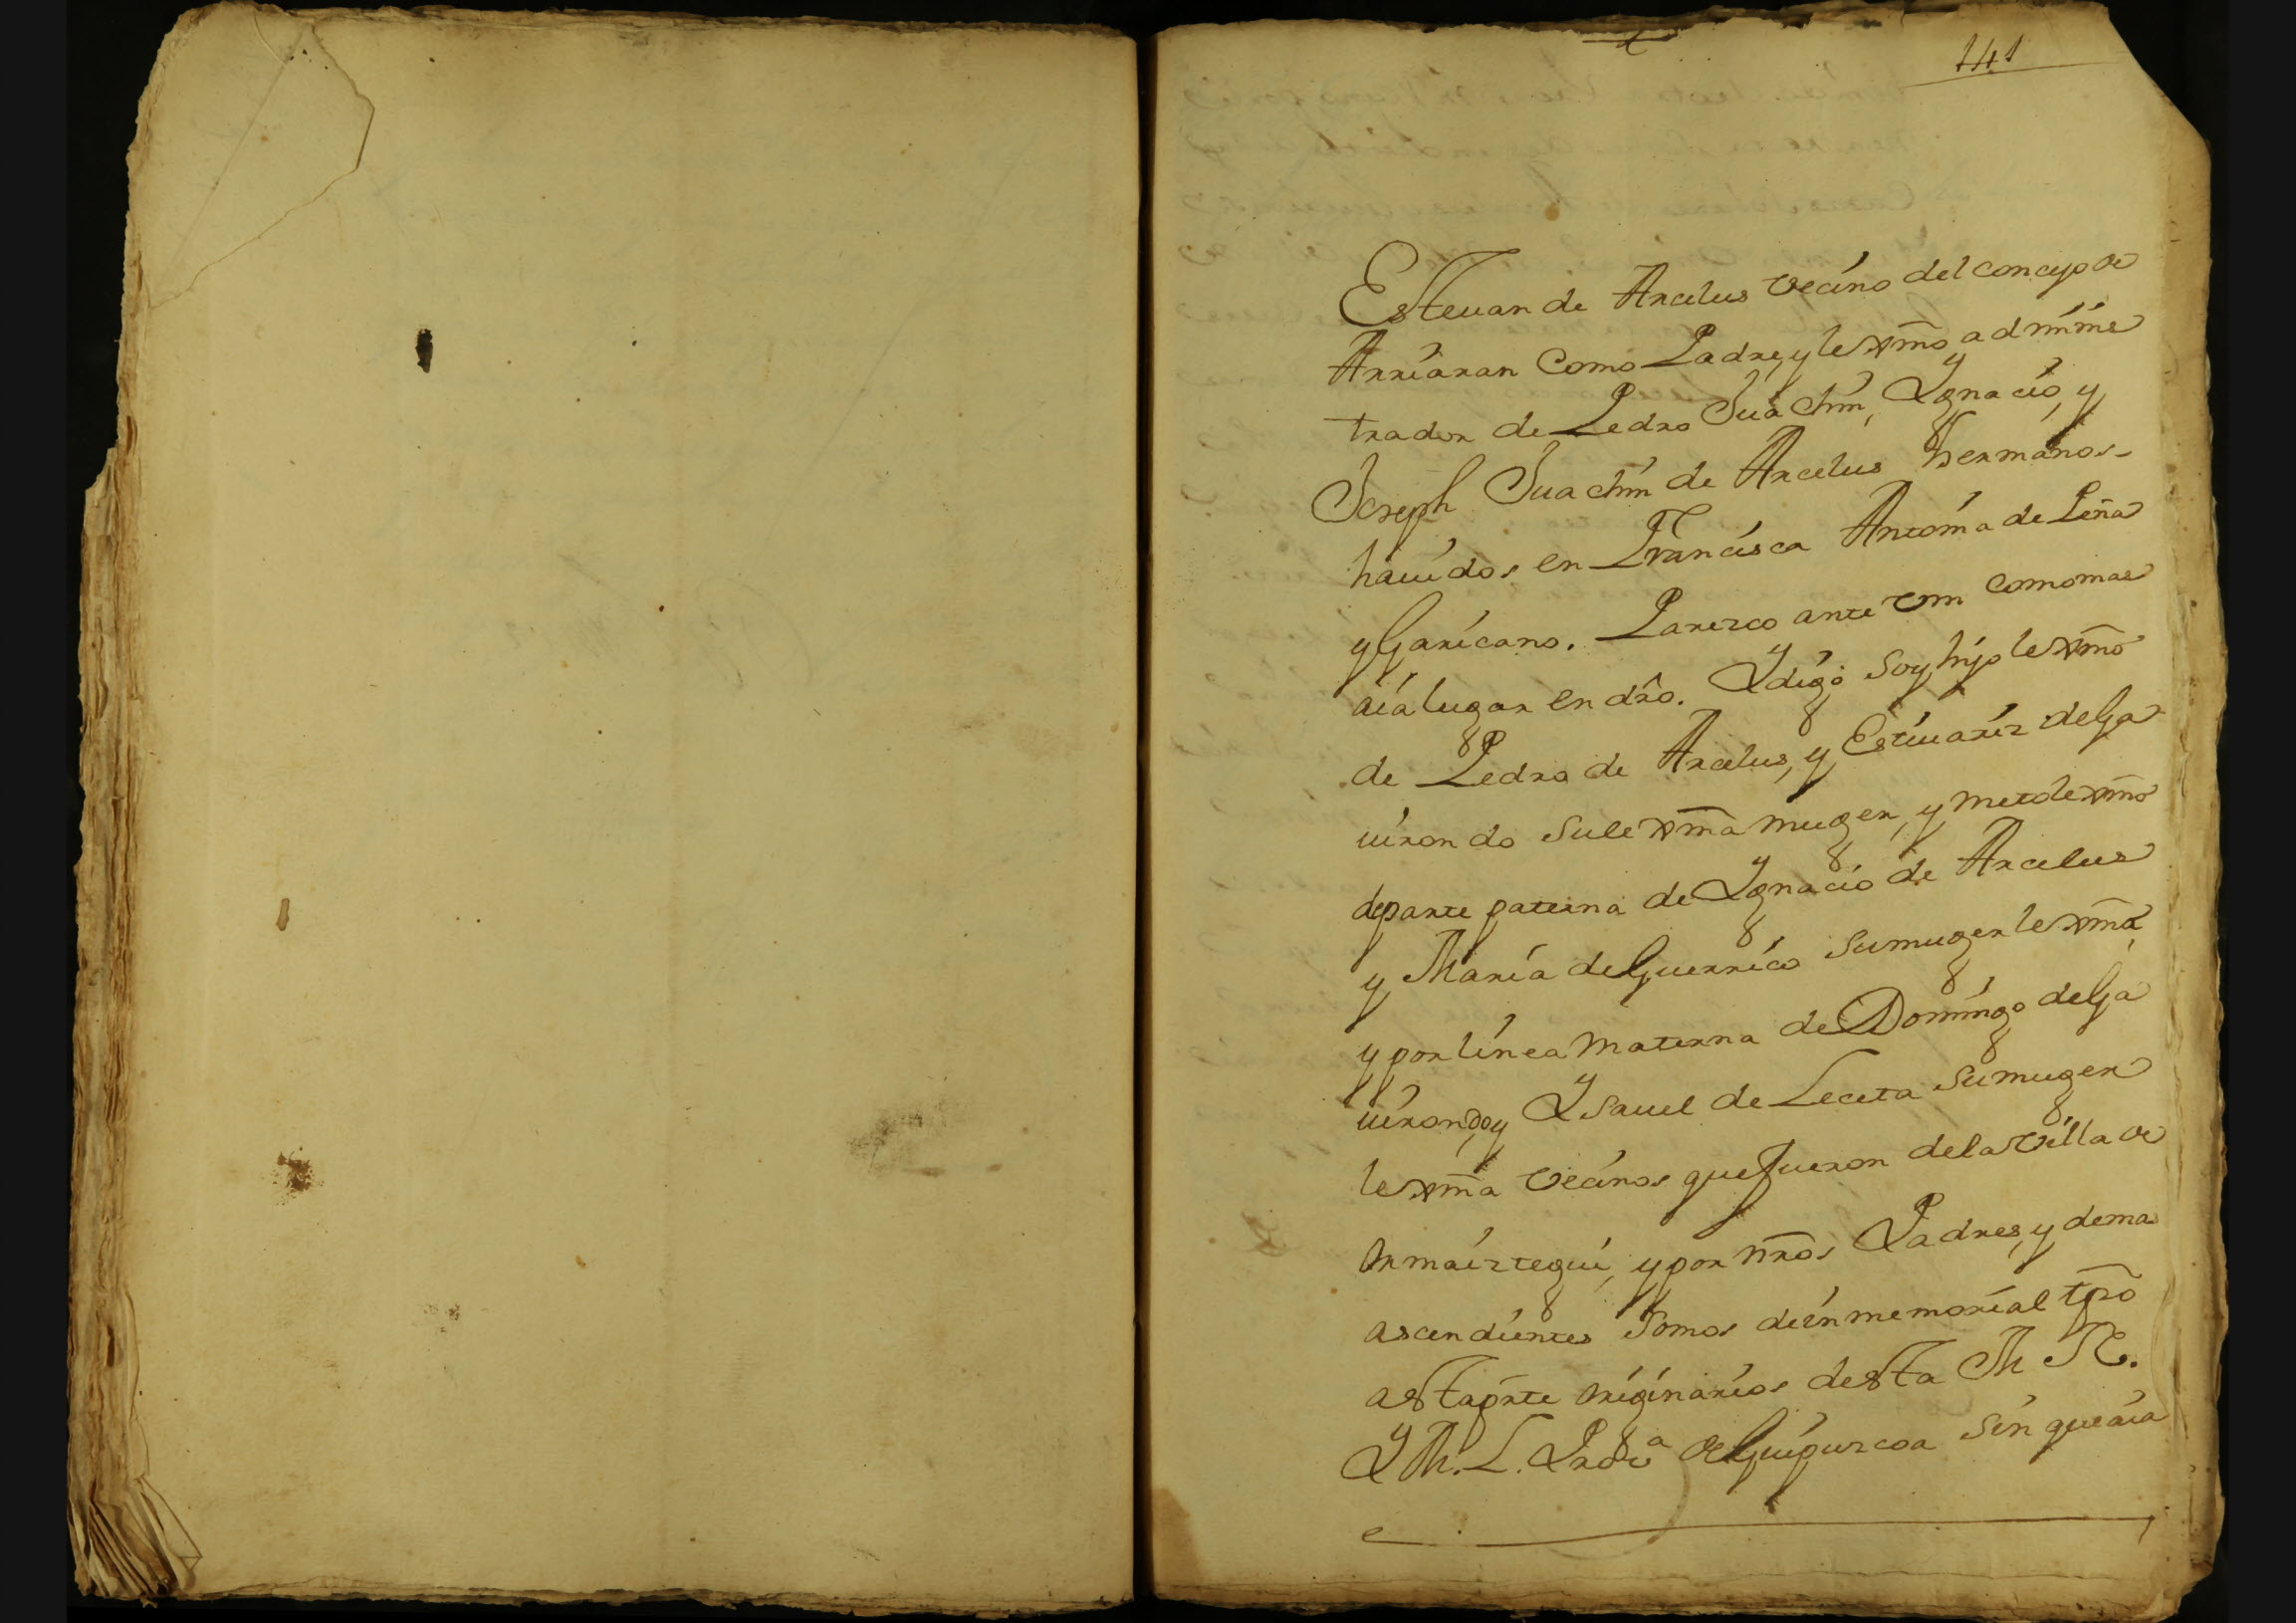 141
Esteuan de Arcelus vecino del concejo de
Arriaran Como Padre, y lexmo adminis
trador de Pedro Juachin, Ygnacio, y
Joseph Juachin de Arcelus hermanos
hauidos en Francisca Antonia de Peña
y Garicano. Parezco ante vm como mas
aia lugar en dro. Y digo soy hijo lexmo
de Pedro de Arcelus, y Estiuariz de Ga
uirondo su lexma muger, y nieto lexmo
de parte paterna de Ygnacio de Arcelus
y Maria de Guerrico su muger lexma,
y por linea Materna de Domingo de Ga
uirondo, y Ysauel de Leceta su muger
lexma vecinos que fueron de la villa de
Ormaiztegui, y por nros Padres, y demas
ascendientes somos de inmemorial tpo
a esta prte originarios desta M N.
Y M. L. Proua de Guipuzcoa sin que aia